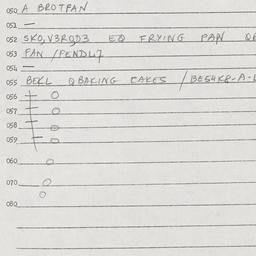 050 A BROTPAN
051 —
052 SKO, V3RQD3 EQ FRYING PAN
053 PAN /PENDL7
054 —
055 BEKL QBAKING CAKES /BE54K8-A-
056
057
058
059
060
070
080